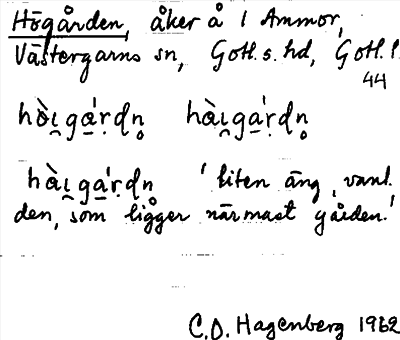 Högården, åker å 1 Ammor,
Västergarns sn, Gotl. s. hd, Gotl. l.
44
hòi̯ga̠ʹrdn̥ hài̯ga̠ʹrdn̥
hài̯ga̠ʹrdn̥ 'liten äng, vanl.
den, som ligger närmast gården.'
C.O. Hagenberg 1962